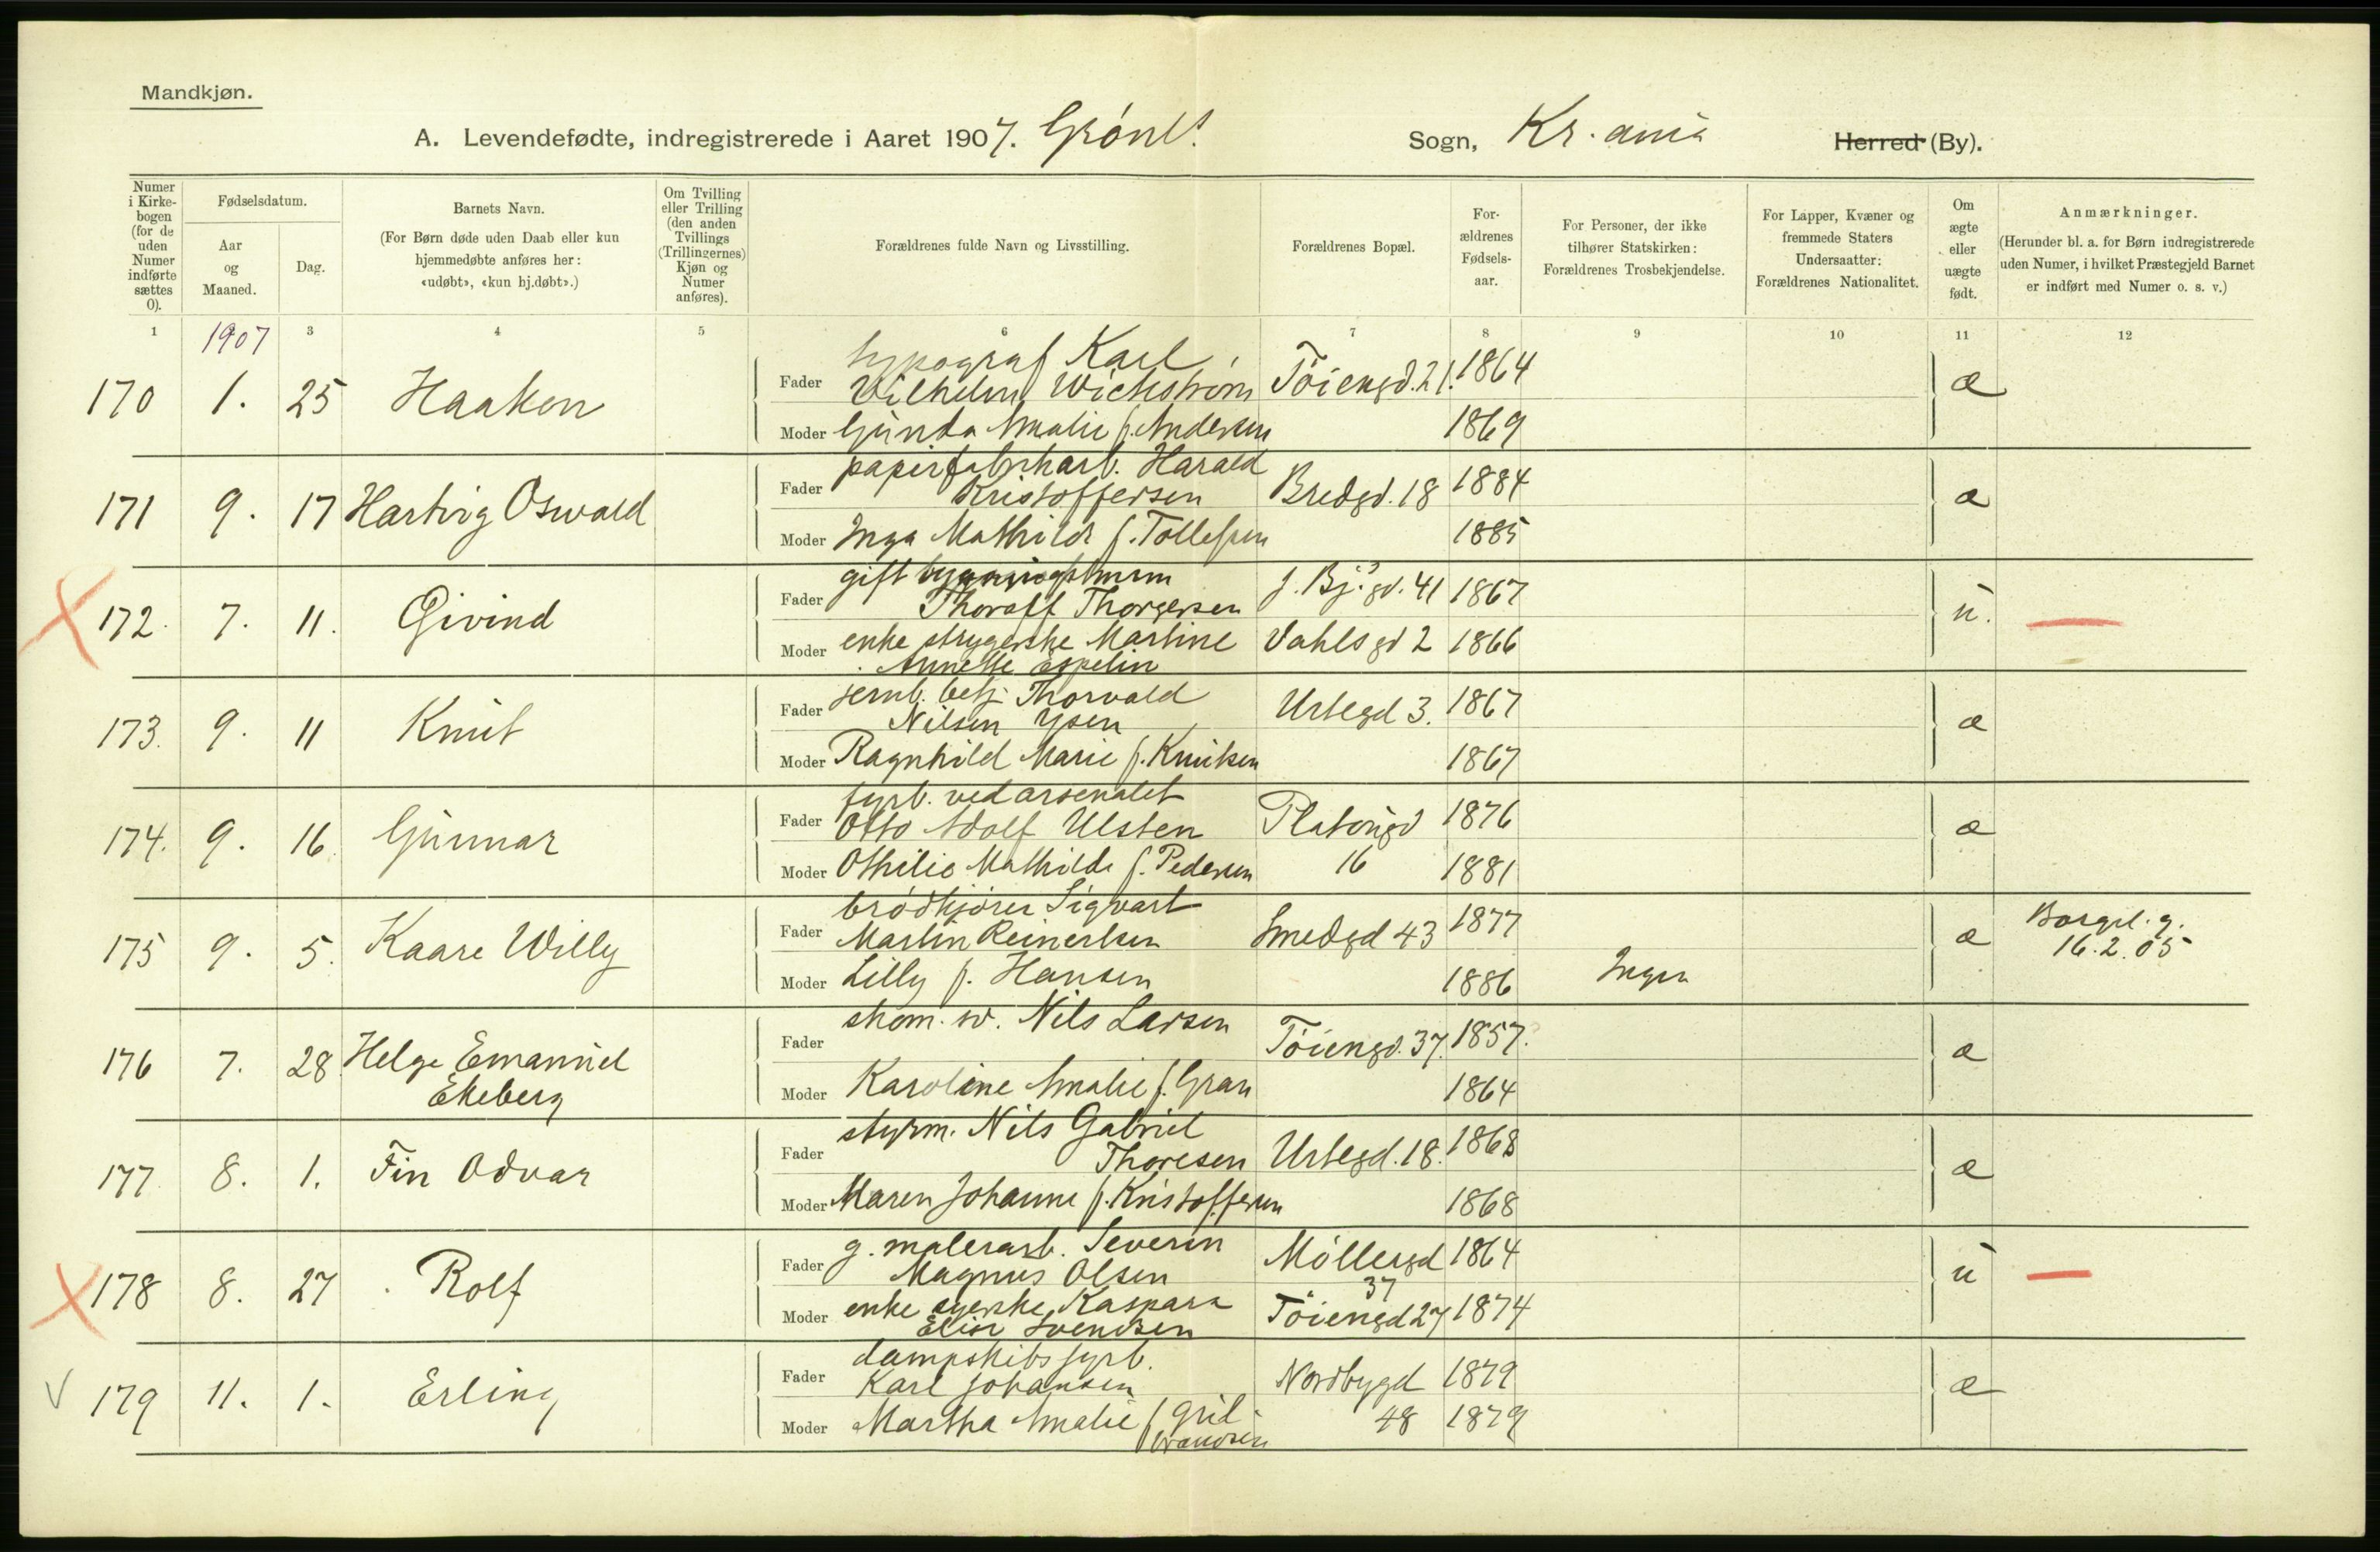 Mandkjøn.
A. Levendefødte, indregistrerede i Aaret 1907. Grønl. Sogn, Kr.ania Herred (By).
Numer i Kirkebogen (for de uden Numer indførte sættes 0).
Fødselsdatum.
Aar og Maaned.
Dag.
Barnets Navn.
(For Børn døde uden Daab eller kun hjemmedøbte anføres her: «udøbt», «kun hj.døbt».)
Om Tvilling eller Trilling (den anden Tvillings (Trillingernes) Kjøn og Numer anføres).
Forældrenes fulde Navn og Livsstilling.
Forældrenes Bopæl.
Forældrenes Fødselsaar.
For Personer, der ikke tilhører Statskirken: Forældrenes Trosbekjendelse.
For Lapper, Kvæner og fremmede Staters Undersaatter: Forældrenes Nationalitet.
Om ægte eller uægte født.
Anmærkninger.
(Herunder bl. a. for Børn indregistrerede uden Numer, i hvilket Præstegjeld Barnet er indført med Numer o. s. v.)
1 3 4 5 6 7 8 9 10 11 12
1907
170 1. 25 Haakon
Fader typograf Karl Vilhelm Wickstrøm Töiengd. 21. 1864 æ
Moder Gunda Amalie f. Andersen 1869
171 9. 17 Hartvig Oswald
Fader papirfabrikarb. Harald Kristoffersen Bredgd. 18 1884 æ
Moder Inga Mathilde f. Tollefsen 1885
172. 7. 11. Øivind
Fader gift bygningstmrm Thoralf Thorgersen J. Bj. gd. 41 1867 u.
Moder enke strygerske Martine Annette Espelin Vahlsgd 2 1866
173. 9. 11 Knut
Fader jernb. betj. Thorvald Nilsen Ysen Urtegd 3. 1867 æ
Moder Ragnhild Marie f. Knutsen 1867
174. 9. 16. Gunnar
Fader fyrb. ved arsenalet Otto Adolf Ulsten Platougd 16 1876 æ
Moder Othilie Mathilde f. Pedersen 1881
175 9. 5. Kaare Willy
Fader brödkjører Sigvart Martin Reinertsen Smedgd 43 1877 æ Borgel. g. 16.2.05
Moder Lilly f. Hansen 1886 Ingen
176 7. 28. Helge Emanuel Ekeberg
Fader skom. sv. Nils Larsen Töiengd. 37. 1857. æ
Moder Karoline Amalie f. Gran 1864
177 8. 1. Fin Odvar
Fader styrm. Nils Gabriel Thoresen Urtegd. 18. 1868 æ
Moder Maren Johanne f. Kristoffersen 1868
178 8. 27 Rolf
Fader g. malerarb. Severin Magnus Olsen Möllergd 37 1864 u
Moder enke syerske Kaspara Elise Svendsen Töiengd 27 1874
179 11. 1. Erling
Fader dampskibsfyrb. Karl Johansen Nordbygd 48 1879 æ
Moder Martha Amalie f. Gulbrandsen 1879